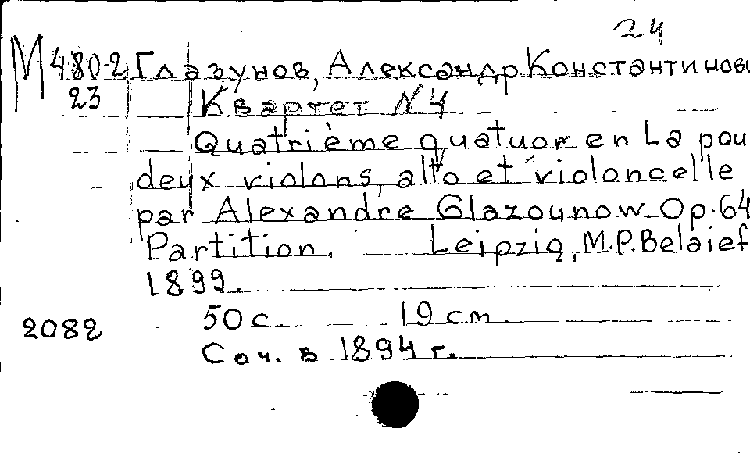 24
М 480-2 Глазунов, Александр Константинови
23 Квартет N4
Quatrième quatuor en La pou
deux violons, alto et violoncelle
par Alexandre Glazounow. Op. 64
Partition. Leipzig, M.P. Belaief
1899.
50 с. 19 cm
2082
Соч. в 1894 г.